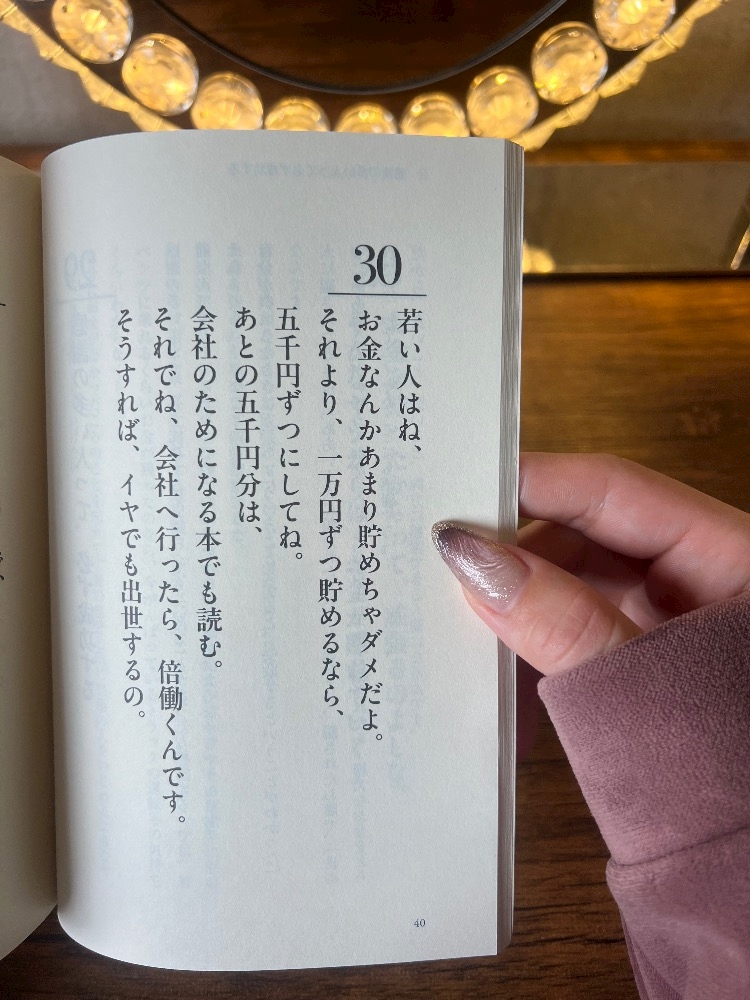 30
若い人はね、
お金なんかあまり貯めちゃダメだよ。
それより、一万円ずつ貯めるなら、
五千円ずつにしてね。
あとの五千円分は、
会社のためになる本でも読む。
それでね、会社へ行ったら、倍働くんです。
そうすれば、イヤでも出世するの。
40